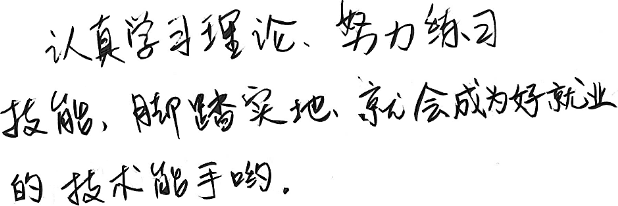 认真学习理论、努力练习
技能，脚踏实地、就会成为好就业
的技术能手哟.